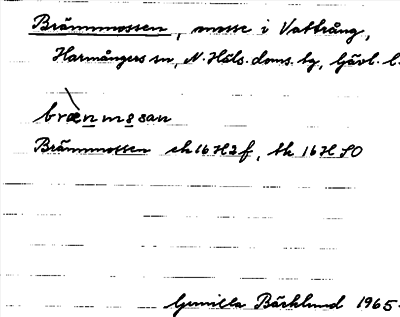 Brämmossen, mosse i Vattrång,
Harmångers sn, N. Häls. doms. tg, Gävl. l.
brænmɷsan
Brämmossen ek 16H2f, tk 16H SO
Gunilla Bäcklund 1965.